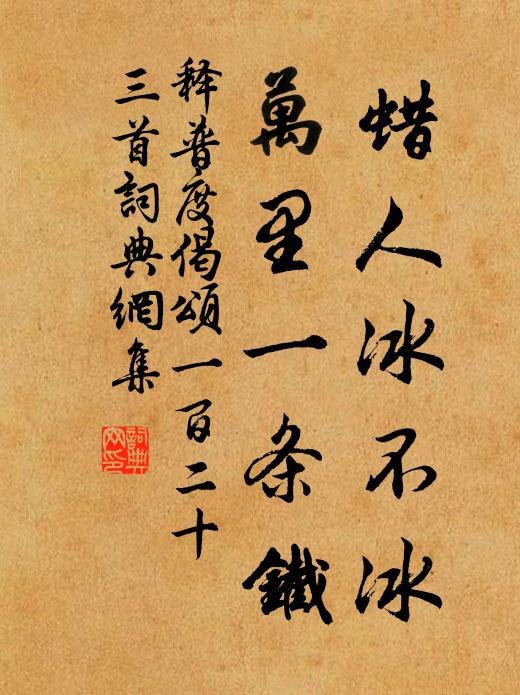 蜡人冰不冰
萬里一条鐵
释普度偈頌一百二十
三首詞典網集
詞典
网印